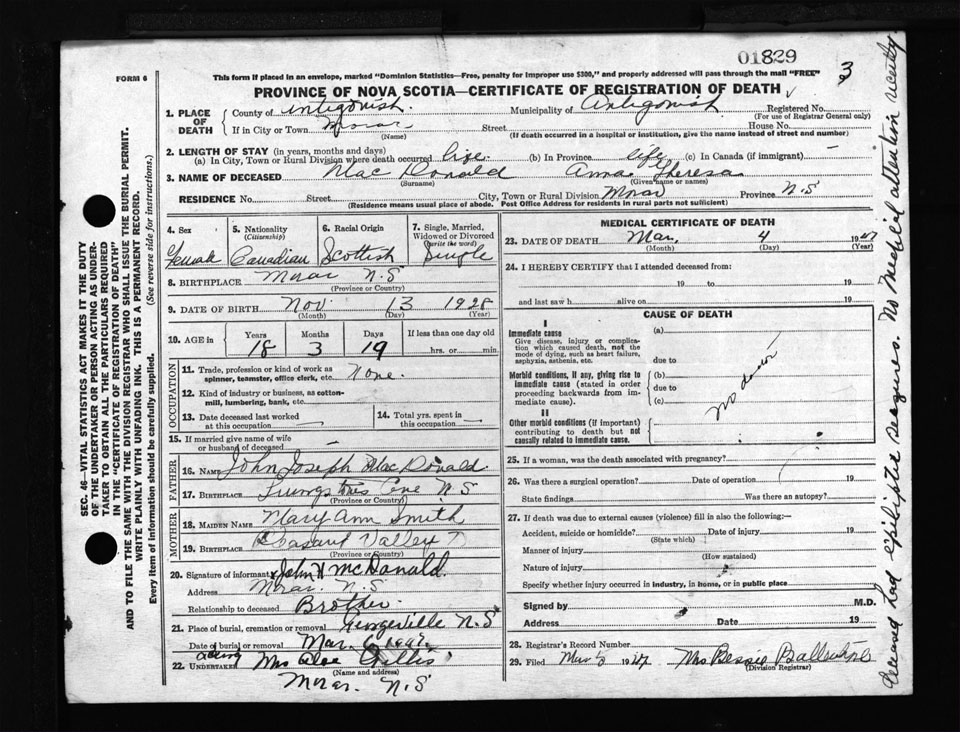 01829
FORM 6
This form if placed in an envelope, marked "Dominion Statistics—Free, penalty for improper use $300," and properly addressed will pass through the mail "FREE"
3
PROVINCE OF NOVA SCOTIA—CERTIFICATE OF REGISTRATION OF DEATH
1. PLACE OF DEATH
County of Antigonish Municipality of Antigonish Registered No.
(For use of Registrar General only)
If in City or Town Morar Street House No.
(Name) (If death occurred in a hospital or institution, give the name instead of street and number)
2. LENGTH OF STAY (in years, months and days)
(a) In City, Town or Rural Division where death occurred life (b) In Province life (c) In Canada (if immigrant) —
3. NAME OF DECEASED Mac Donald Anna Theresa
(Surname) (Given name or names)
RESIDENCE No. Street City, Town or Rural Division Morar Province N.S
(Residence means usual place of abode. Post Office Address for residents in rural parts not sufficient)
4. Sex 5. Nationality (Citizenship) 6. Racial Origin 7. Single, Married, Widowed or Divorced (write the word)
Female Canadian Scottish Single
8. BIRTHPLACE Morar N.S
(Province or Country)
9. DATE OF BIRTH Nov 13 1928
(Month) (Day) (Year)
10. AGE in Years Months Days If less than one day old
18 3 19 hrs. or min.
OCCUPATION
11. Trade, profession or kind of work as spinner, teamster, office clerk, etc. None.
12. Kind of industry or business, as cotton-mill, lumbering, bank, etc.
13. Date deceased last worked at this occupation —
14. Total yrs. spent in this occupation —
15. If married give name of wife or husband of deceased —
FATHER
16. NAME John Joseph MacDonald.
17. BIRTHPLACE Cove N.S
(Province or Country)
MOTHER
18. MAIDEN NAME Mary Ann Smith
19. BIRTHPLACE Pleasant Valley
(Province or Country)
20. Signature of informant x John H McDonald.
Address Morar. N.S
Relationship to deceased Brother.
21. Place of burial, cremation or removal Georgeville N.S
Date of burial or removal Mar. 6 1947.
22. acting UNDERTAKER Mrs Gillis
(Name and address)
Morar. N.S
MEDICAL CERTIFICATE OF DEATH
23. DATE OF DEATH Mar. 4 1947
(Month) (Day) (Year)
24. I HEREBY CERTIFY that I attended deceased from
19 to 19
and last saw h alive on 19
CAUSE OF DEATH
I
Immediate cause (a)
Give disease, injury or complication which caused death, not the mode of dying, such as heart failure, asphyxia, asthenia, etc.
due to
Morbid conditions, if any, giving rise to immediate cause (stated in order proceeding backwards from immediate cause).
(b)
due to
(c)
II
Other morbid conditions (if important) contributing to death but not causally related to immediate cause.
No doctor
25. If a woman, was the death associated with pregnancy?
26. Was there a surgical operation? Date of operation 19
State findings Was there an autopsy?
27. If death was due to external causes (violence) fill in also the following:—
Accident, suicide or homicide? Date of injury 19
(State which)
Manner of injury
(How sustained)
Nature of injury
Specify whether injury occurred in industry, in home, or in public place
Signed by M.D.
Address Date 19
28. Registrar's Record Number
29. Filed Mar 5 1947 Mrs Bessie
(Division Registrar)
SEC. 46—VITAL STATISTICS ACT MAKES IT THE DUTY
OF THE UNDERTAKER OR PERSON ACTING AS UNDER-
TAKER TO OBTAIN ALL THE PARTICULARS REQUIRED
IN THE "CERTIFICATE OF REGISTRATION OF DEATH"
AND TO FILE THE SAME WITH THE DIVISION REGISTRAR WHO SHALL ISSUE THE BURIAL PERMIT.
WRITE PLAINLY WITH UNFADING INK. THIS IS A PERMANENT RECORD.
Every item of information should be carefully supplied. (See reverse side for instructions.)
Deceased had epileptic seizures. No Medical attention recently